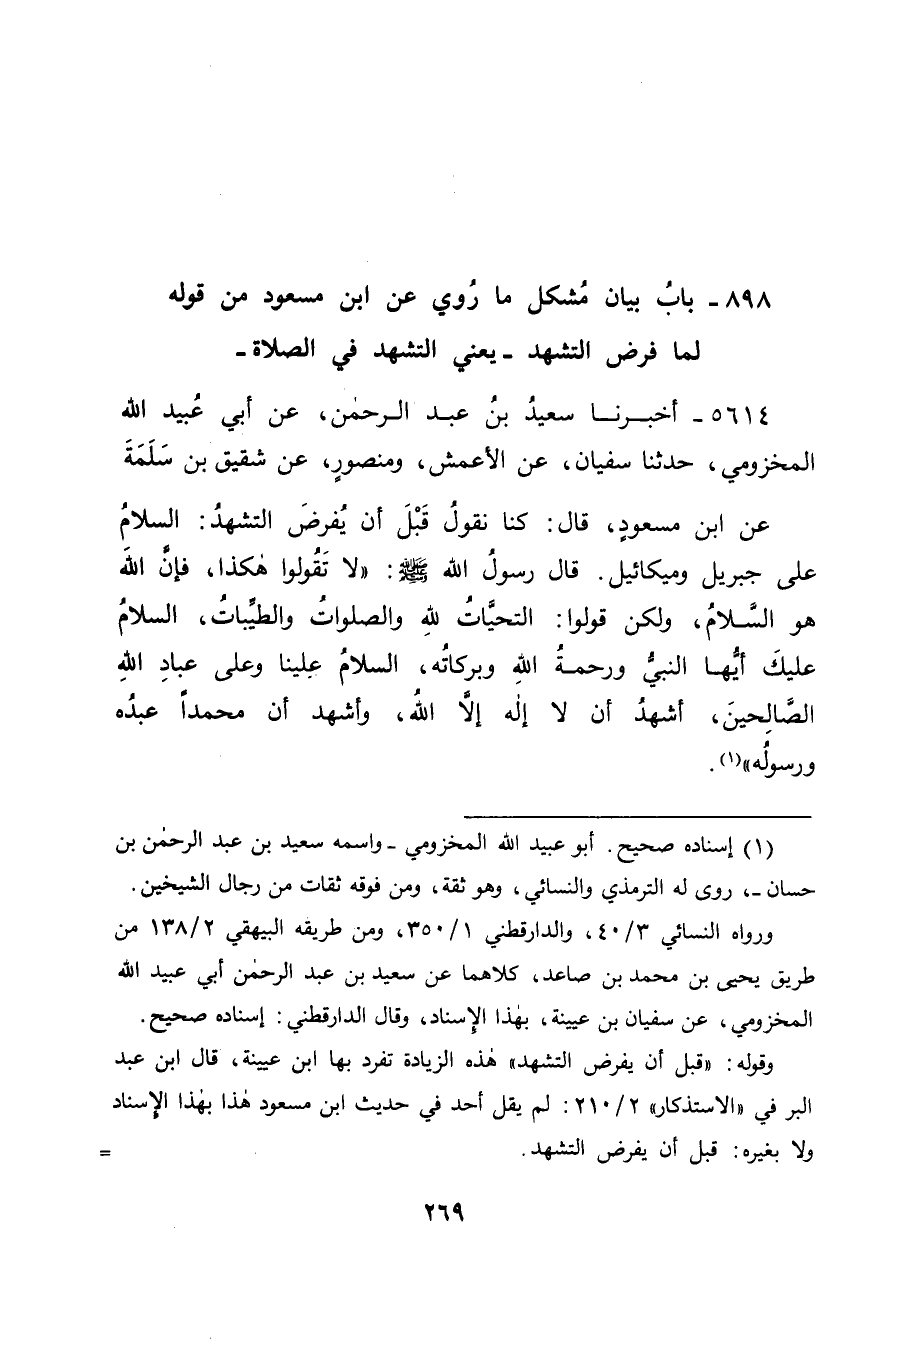 ٨٩٨ ـ بابُ بيان مُشكل ما رُوي عن ابن مسعود من قوله
لما فرض التشهد ـ يعني التشهد في الصلاة ـ
٥٦١٤ ـ أخبرنا سعيدُ بنُ عبد الرحمٰن، عن أبي عُبيد الله
المخزومي، حدثنا سفيان، عن الأعمش، ومنصورٍ، عن شقيق بن سَلَمَةَ
عن ابن مسعودٍ، قال: كنا نقولُ قَبْلَ أن يُفرضَ التشهدُ: السلامُ
على جبريل وميكائيل. قال رسولُ الله ﷺ: «لا تَقُولوا هٰكذا، فإنَّ اللهَ
هو السَّلامُ، ولكن قولوا: التحيَّاتُ للهِ والصلواتُ والطيِّباتُ، السلامُ
عليكَ أيُّها النبيُّ ورحمةُ اللهِ وبركاتُه، السلامُ علينا وعلى عبادِ اللهِ
الصَّالِحينَ، أشهدُ أن لا إلٰه إلَّا اللهُ، وأشهد أن محمداً عبدُه
ورسولُه»(١).
(١) إسناده صحيح. أبو عبيد الله المخزومي ـ واسمه سعيد بن عبد الرحمٰن بن
حسان ـ، روى له الترمذي والنسائي، وهو ثقة، ومن فوقه ثقات من رجال الشيخين.
ورواه النسائي ٤٠/٣، والدارقطني ٣٥٠/١، ومن طريقه البيهقي ١٣٨/٢ من
طريق يحيى بن محمد بن صاعد، كلاهما عن سعيد بن عبد الرحمٰن أبي عبيد الله
المخزومي، عن سفيان بن عيينة، بهٰذا الإسناد، وقال الدارقطني: إسناده صحيح.
وقوله: «قبل أن يفرض التشهد» هٰذه الزيادة تفرد بها ابن عيينة، قال ابن عبد
البر في «الاستذكار» ٢١٠/٢: لم يقل أحد في حديث ابن مسعود هٰذا بهٰذا الإسناد
ولا بغيره: قبل أن يفرض التشهد. =
٢٦٩